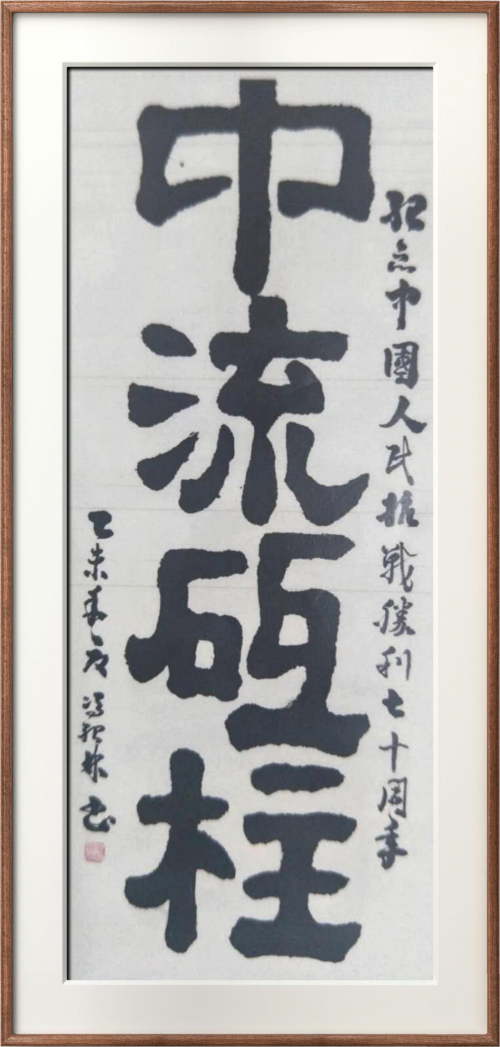 紀念中國人民抗戰勝利七十周年
中流砥柱
乙未春 馮 林书